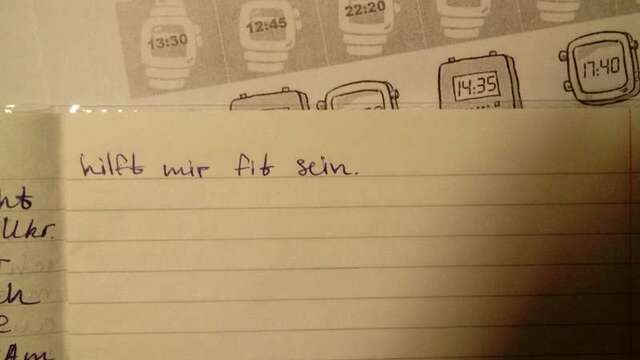 13:30
12:45
22:20
14:35
17:40
hilft mir fit sein.
Ukr.
Am